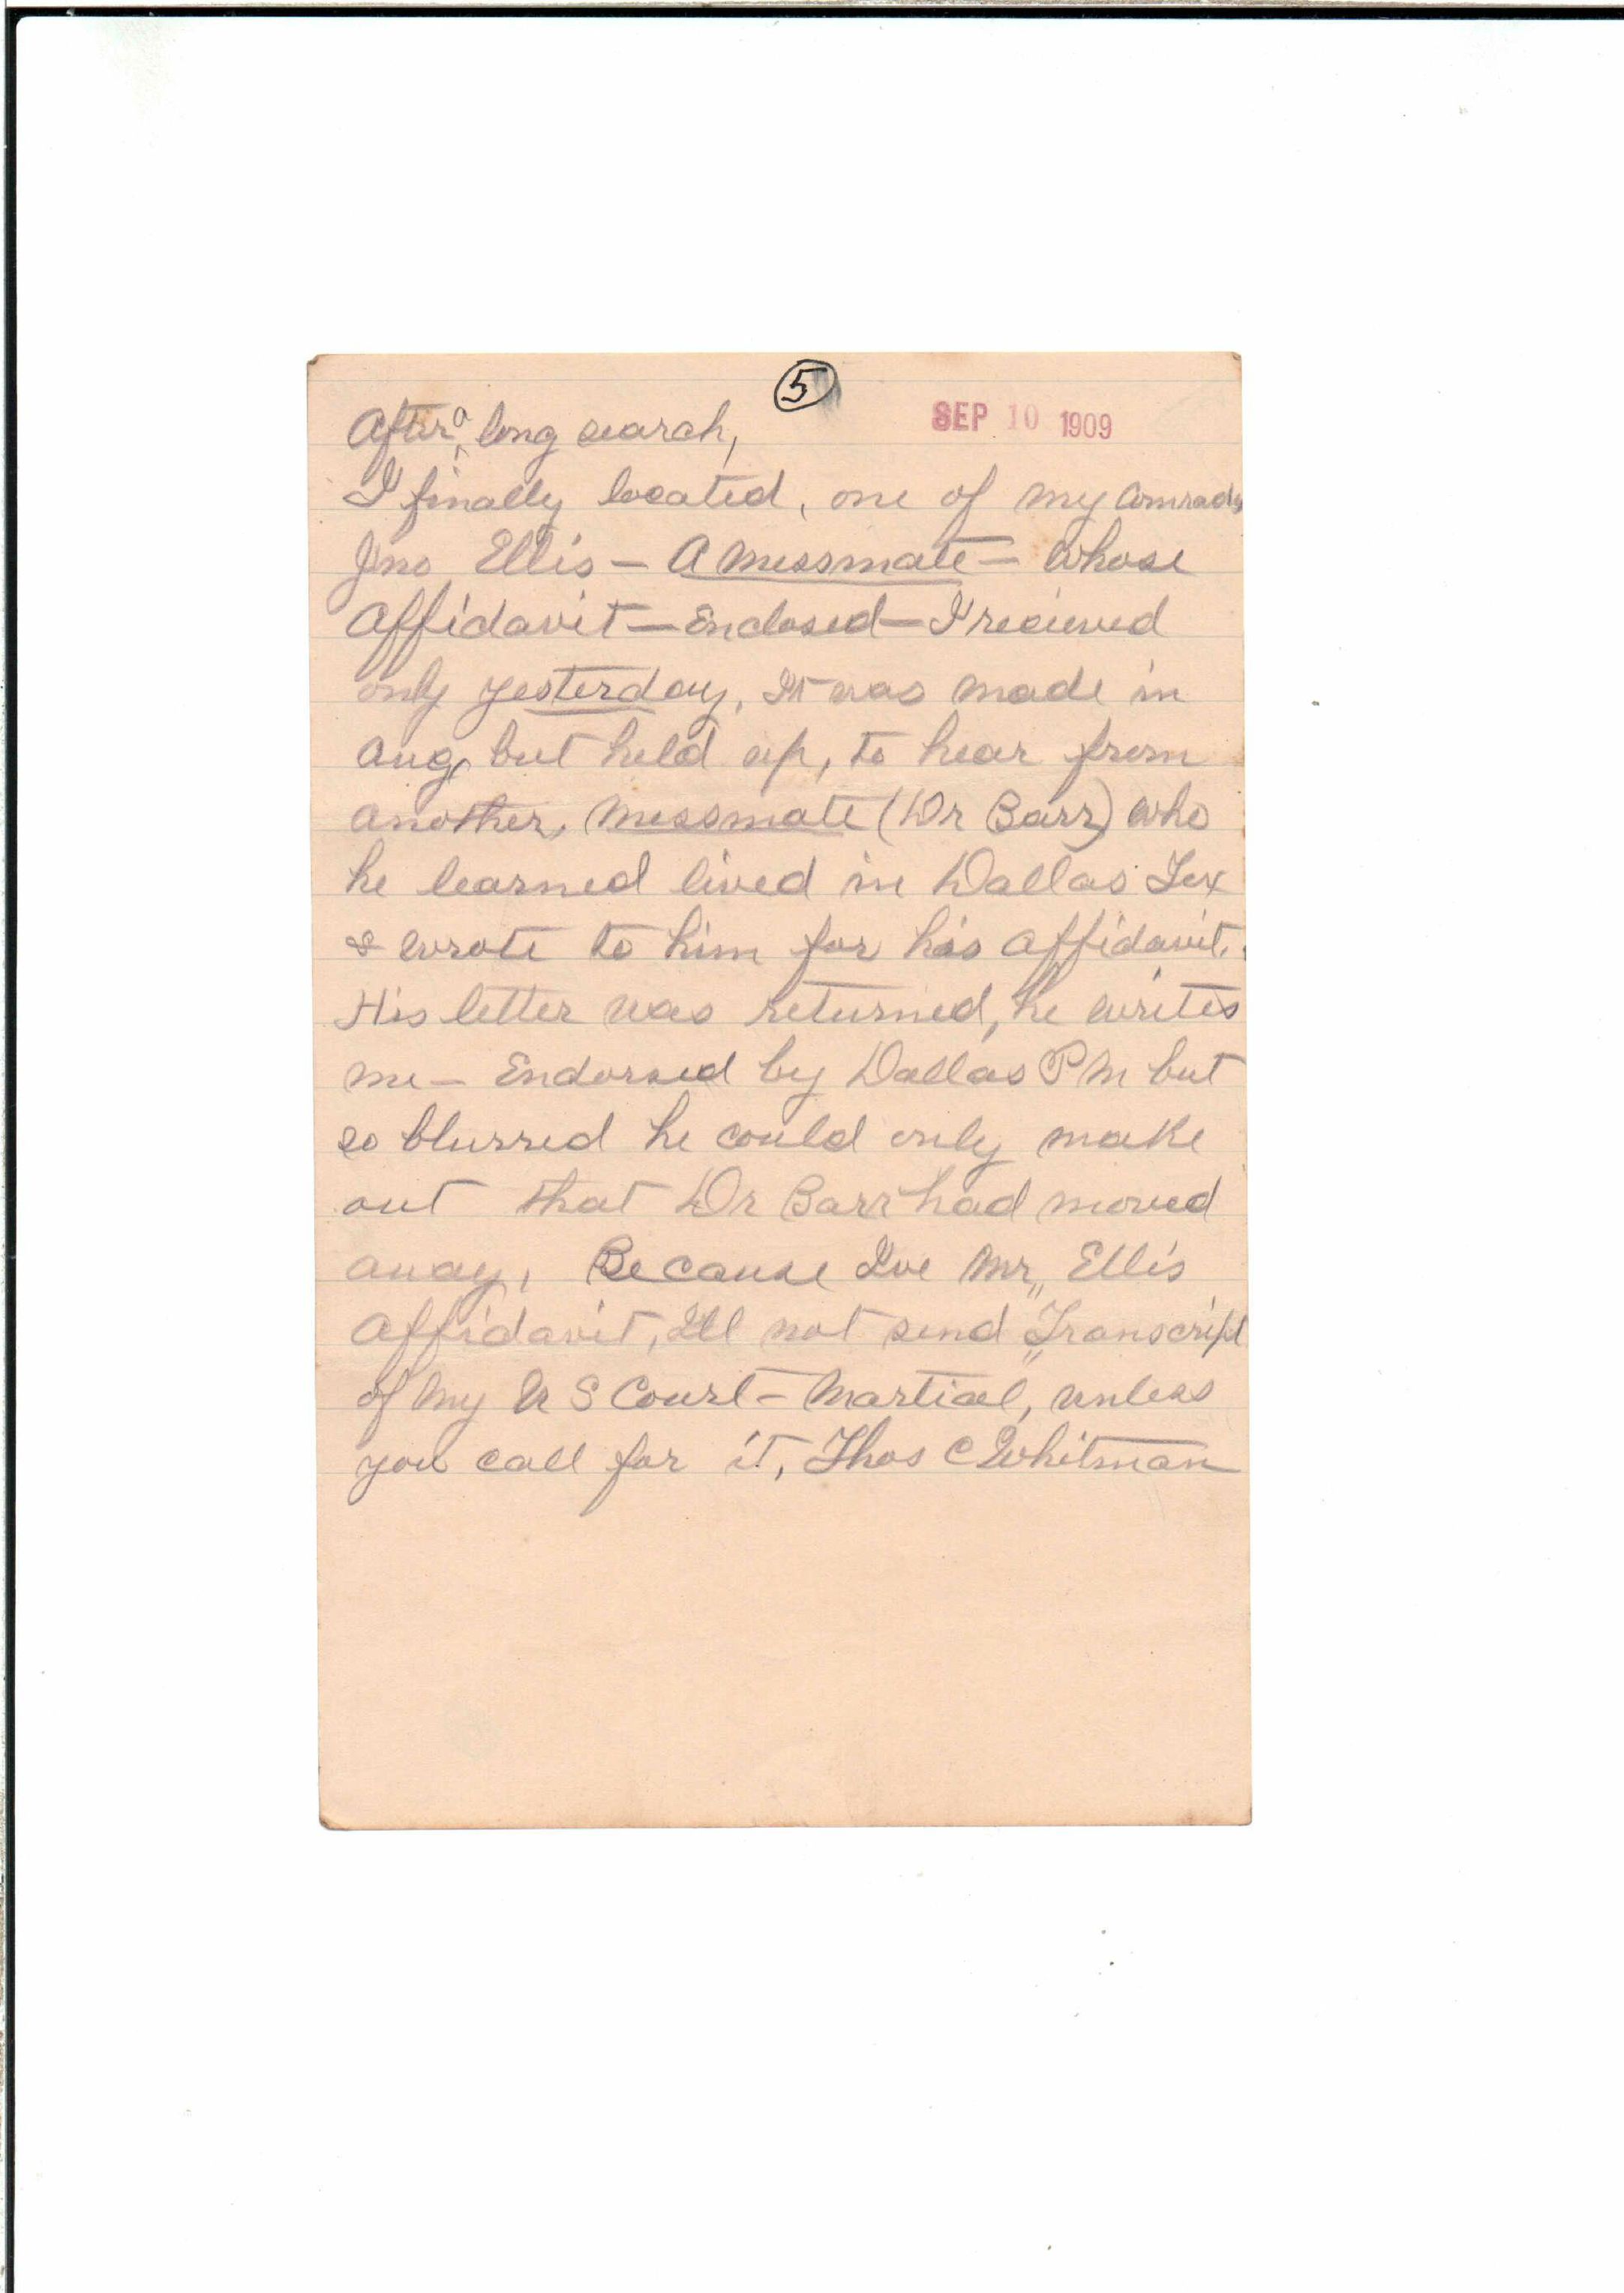 5
SEP 10 1909
After a long search,
I finally located, one of my Comrades
Jno Ellis — A Messmate — Whose
Affidavit — Enclosed — I recieved
only yesterday, It was made in
Aug, but held up, to hear from
another, Messmate (Dr Barr) who
he learned lived in Dallas Tex
& wrote to him for his affidavit.
His letter was returned, he writes
me — Endorsed by Dallas P M but
so blurred he could only make
out that Dr Barr had moved
away, Because Ive Mr, Ellis
Affidavit, Ill not send "Transcript
of my U S Court-Martial," unless
you call for it, Thos C Whitman